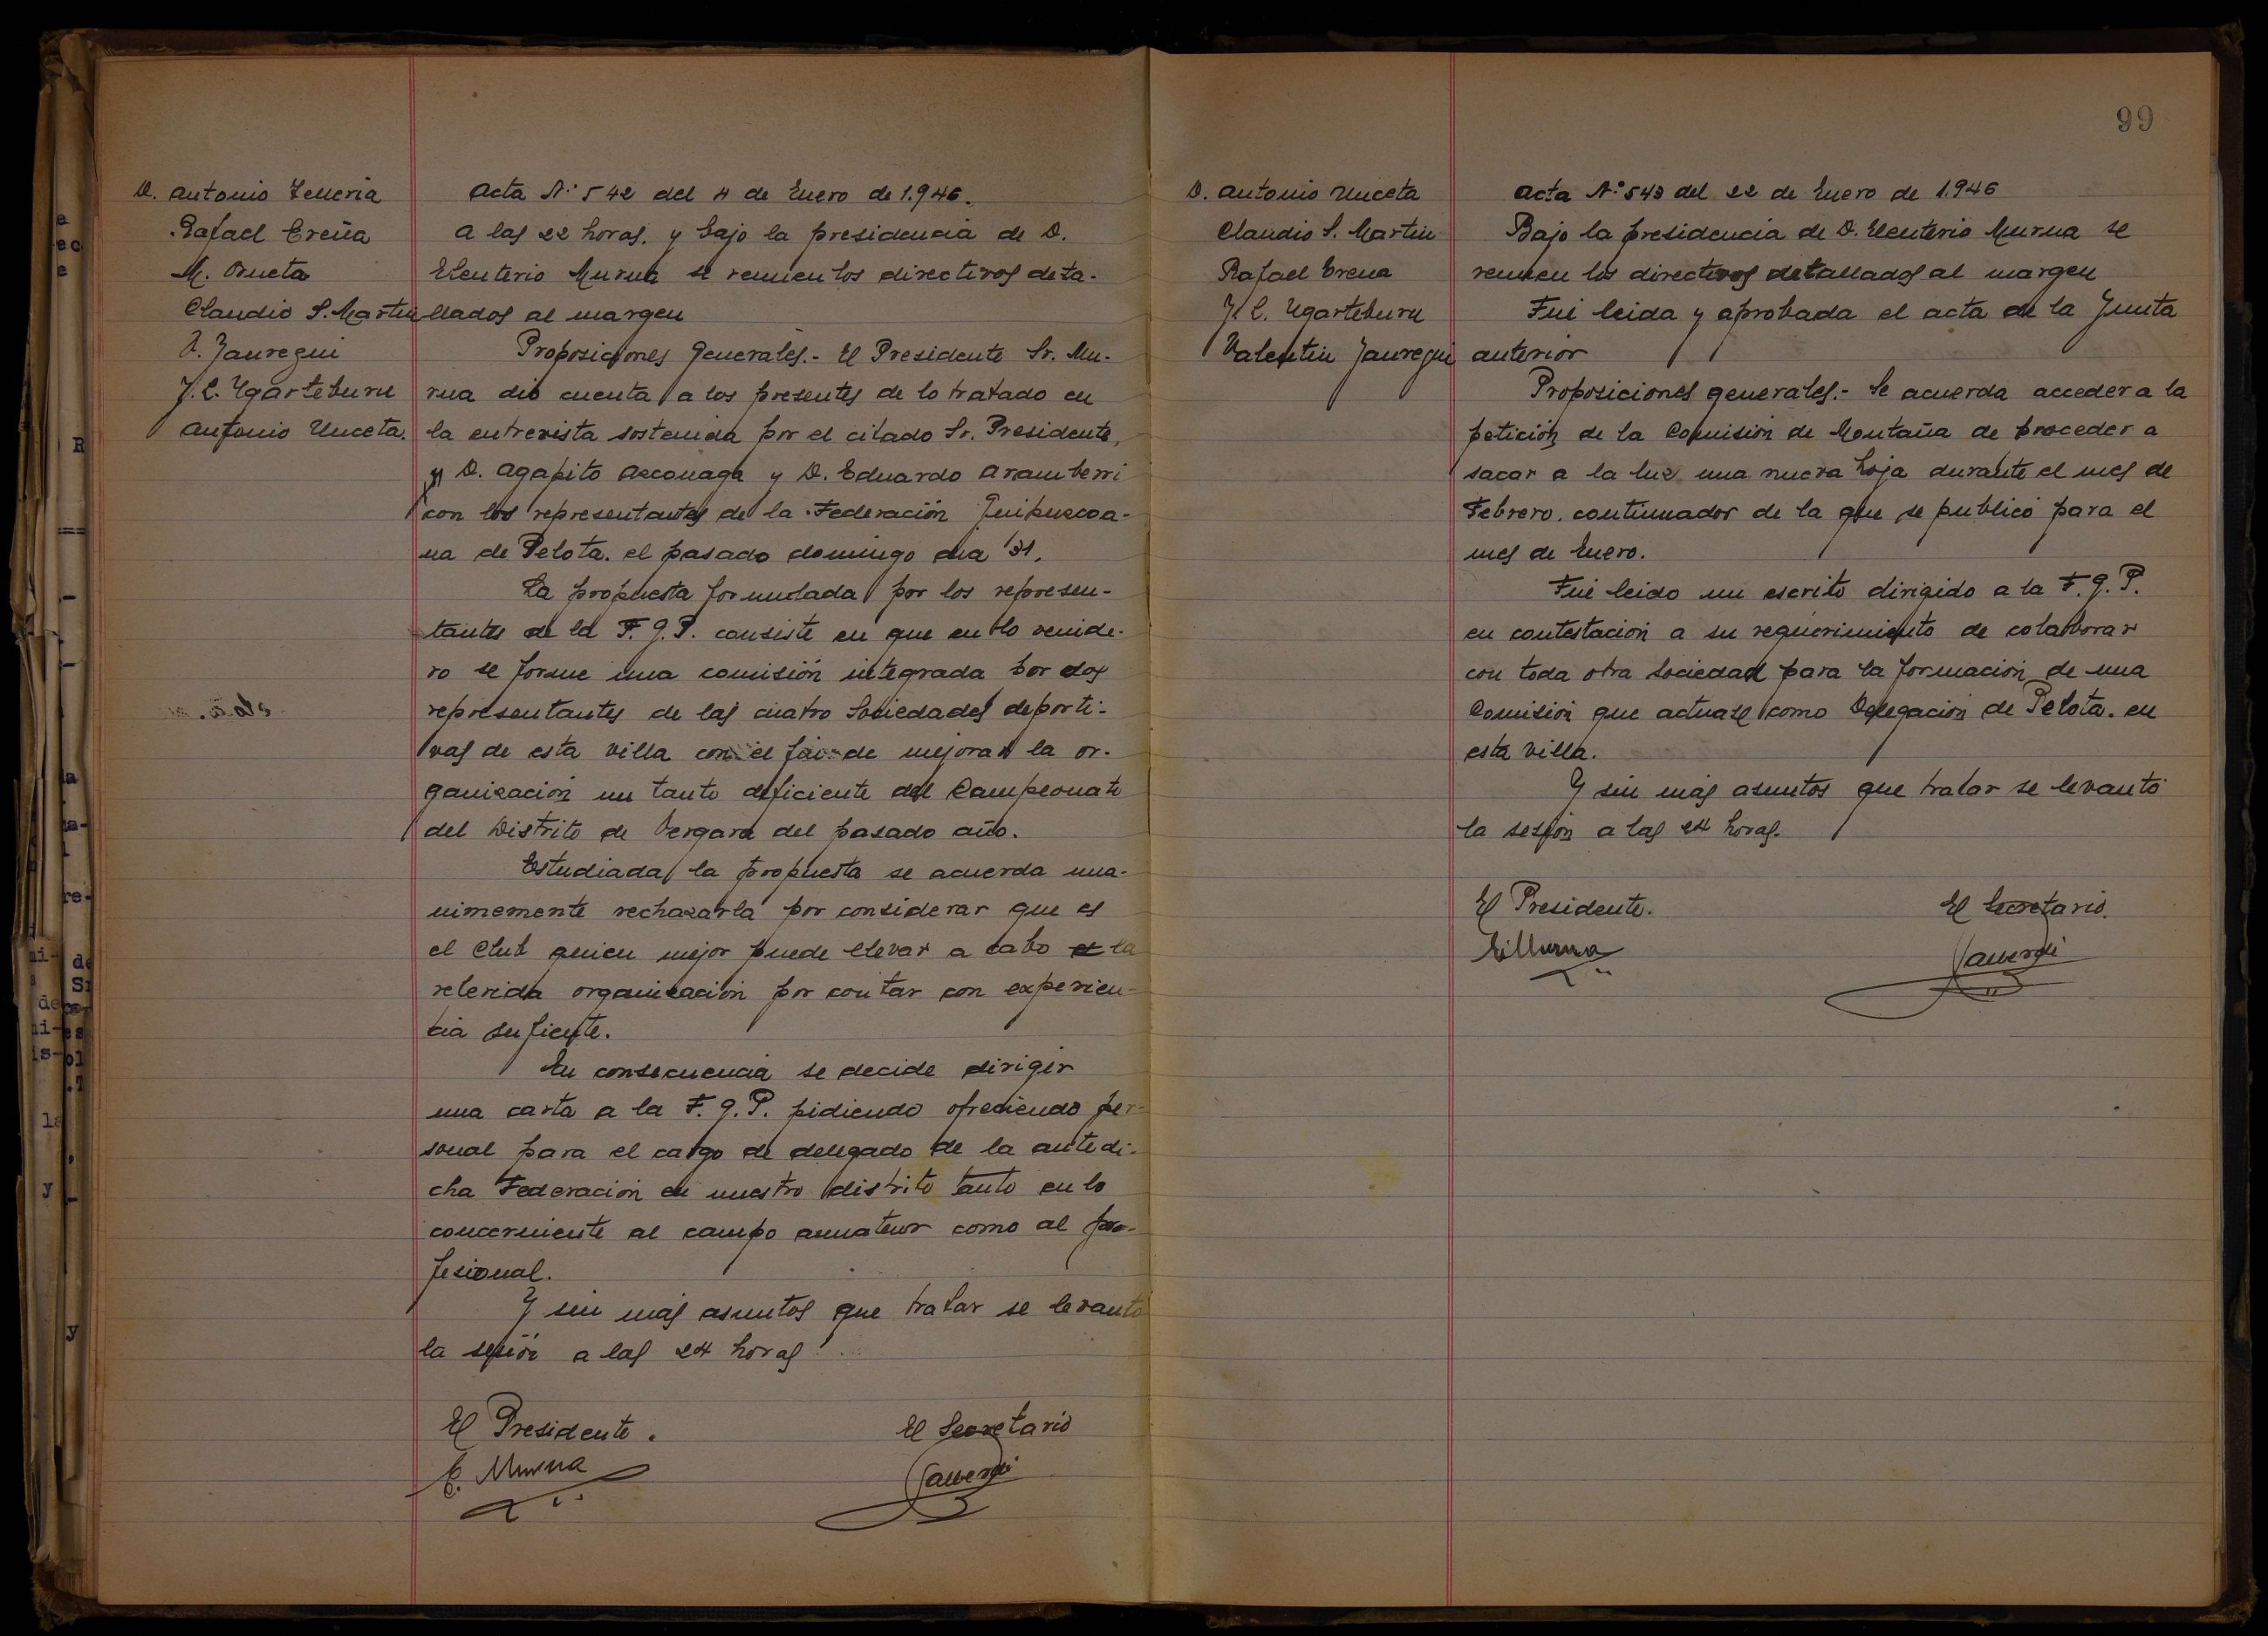 D. Antonio Telleria
Rafael Ereña
M. Orueta
Claudio S. Martin
V. Jauregui
J. C. Ugarteburu
Antonio Unceta.
Acta Nº 542 del 4 de Enero de 1.946.
A las 22 horas. y bajo la presidencia de D.
Eleuterio Murua se reunen los directivos deta-
llados al margen
Proposiciones Generales.- El Presidente Sr. Mu-
rua dió cuenta a los presentes de lo tratado en
la entrevista sostenida por el citado Sr. Presidente,
y D. Agapito Azconaga y D. Eduardo Aramberri
con los representantes de la Federación Guipuzcoa-
na de Pelota. el pasado domingo dia 31.
La propuesta formulada por los represen-
tantes de la F. G. P. consiste en que en lo venide-
ro se forme una comisión integrada por dos
representantes de las cuatro Sociedades deporti-
vas de esta villa con el fin de mejorar la or-
ganización un tanto deficiente del Campeonato
del Distrito de Vergara del pasado año.
Estudiada la propuesta se acuerda una-
nimemente rechazarla por considerar que es
el Club quien mejor puede llevar a cabo la
referida organización por contar con experien-
cia suficente.
En consecuencia se decide dirigir
una carta a la F. G. P. pidiendo ofreciendo per-
sonal para el cargo de delegado de la antedi-
cha Federación en nuestro distrito tanto en lo
concerniente al campo amateur como al pro-
fesional.
Y sin más asuntos que tratar se levantó
la sesión a las 24 horas.
El Presidente.
El Secretario
E. Murua
Jauregi
99
D. Antonio Unceta
Claudio S. Martin
Rafael Erena
J C. Ugarteburu
Valentin Jauregui
Acta Nº 543 del 22 de Enero de 1.946
Bajo la presidencia de D. Eleuterio Murua se
reunen los directivos detallados al margen
Fué leida y aprobada el acta de la Junta
anterior
Proposiciones generales.- Se acuerda acceder a la
petición de la Comisión de Montaña de proceder a
sacar a la luz una nueva hoja durante el mes de
Febrero. continuador de la que se publicó para el
mes de Enero.
Fué leido un escrito dirigido a la F. G. P.
en contestación a su requerimiento de colaborar
con toda otra Sociedad para la formación de una
Comisión que actuase como Delegación de Pelota. en
esta villa.
Y sin más asuntos que tratar se levantó
la sesión a las 24 horas.
El Presidente.
El Secretario.
E. Murua
Jauregi